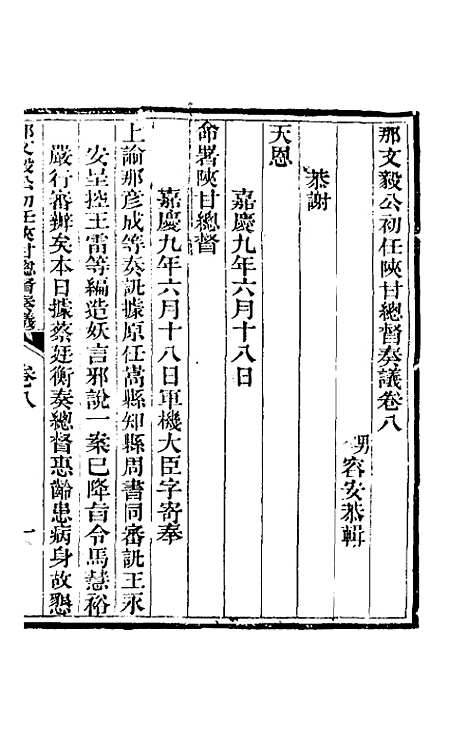 那文毅公初任陝甘總督奏議卷八
男容安恭輯
恭謝
天恩
嘉慶九年六月十八日
命署陝甘總督
嘉慶九年六月十八日軍機大臣字寄奉
上諭那彥成等奏訊據原任嵩縣知縣周書同審訊王永
安呈控王雷等編造妖言邪說一案已降旨令馬慧裕
嚴行審辦矣本日據蔡廷衡奏總督惠齡患病身故懇
那文毅公初任陝甘總督奏議
卷八
一